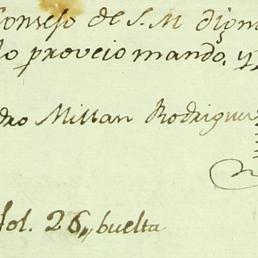 Consejo de S. M dign
lo proveio mando, y
dro Millan Rodrigue
fol. 26,, buelta